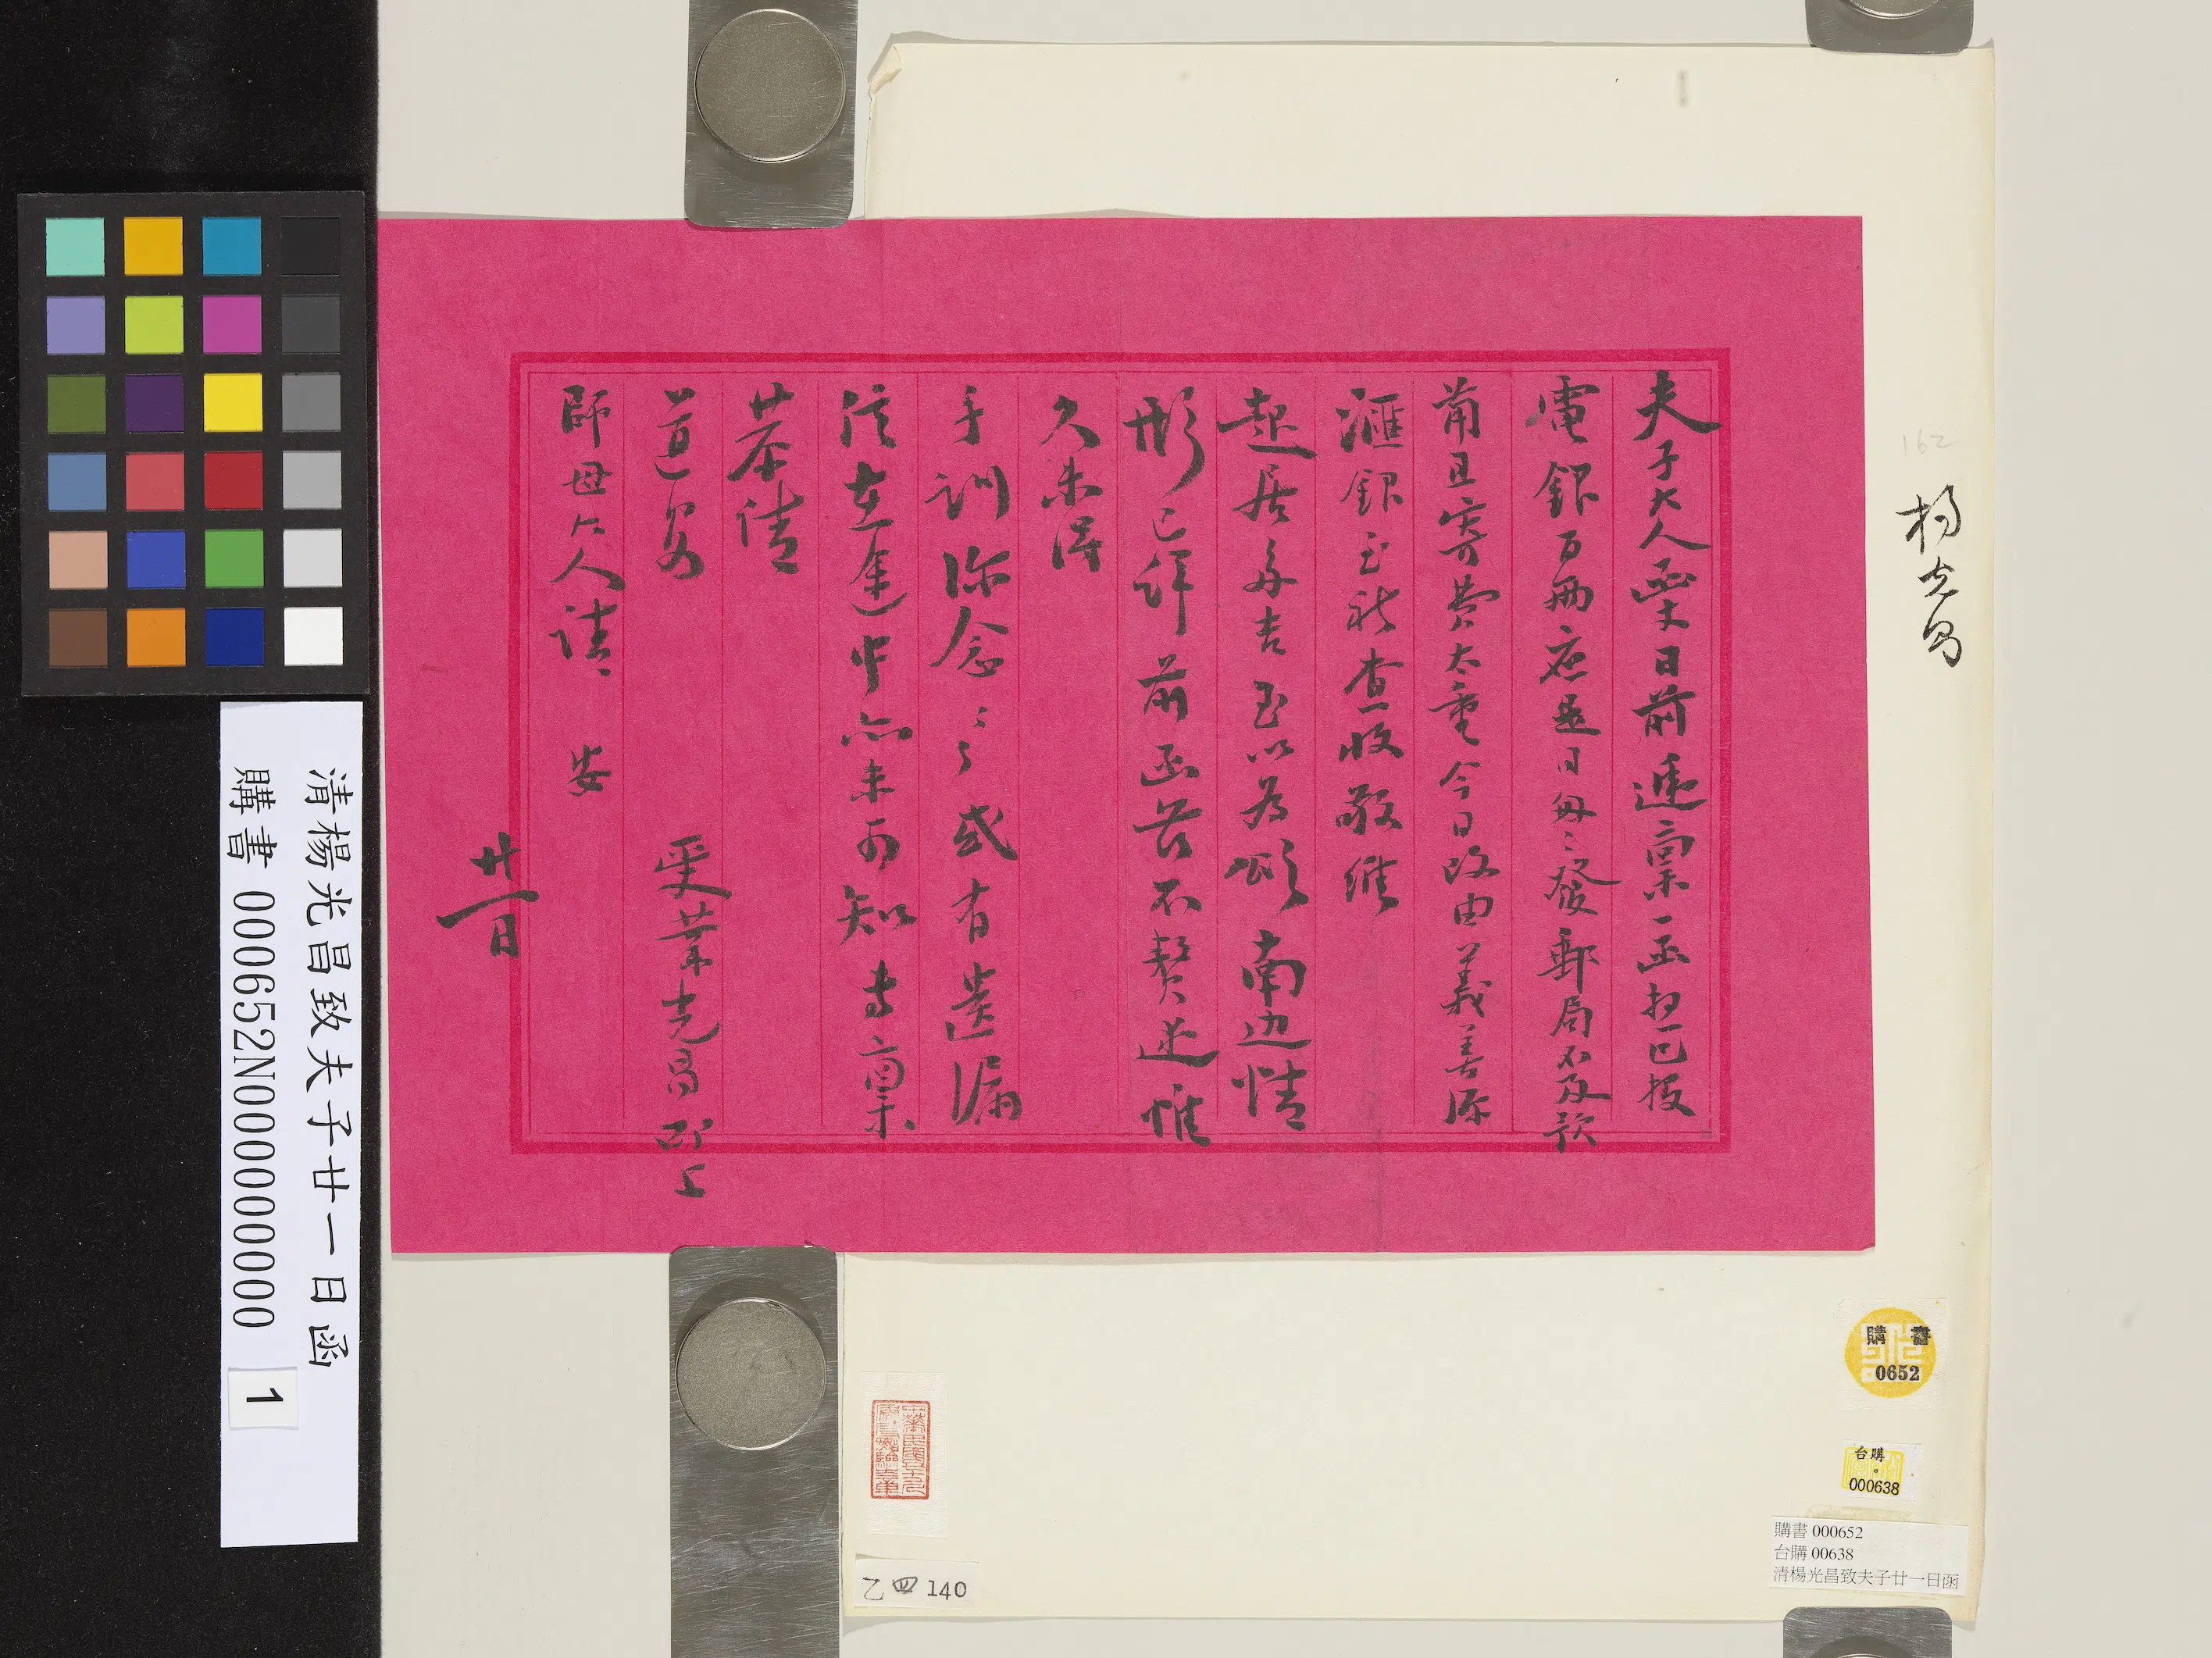 夫子大人函丈日前遞稟一函想已投
電銀百兩應是日匆匆發郵局不及款
前且寄費太重今日改由義善源
滙銀至祈查收敬維
起居多吉至以為頌南边情
形已詳前函茲不贅述惟
久未得
手訓弥念之之或有遺漏
信在途中亦未可知專稟
恭請
道安 受業光昌叩上
師母大人請安
廿一日
楊光昌
162
清楊光昌致夫子廿一日函
購書 000652N000000000
1
購書
0652
台購
000638
購書 000652
台購 00638
清楊光昌致夫子廿一日函
乙 四 140